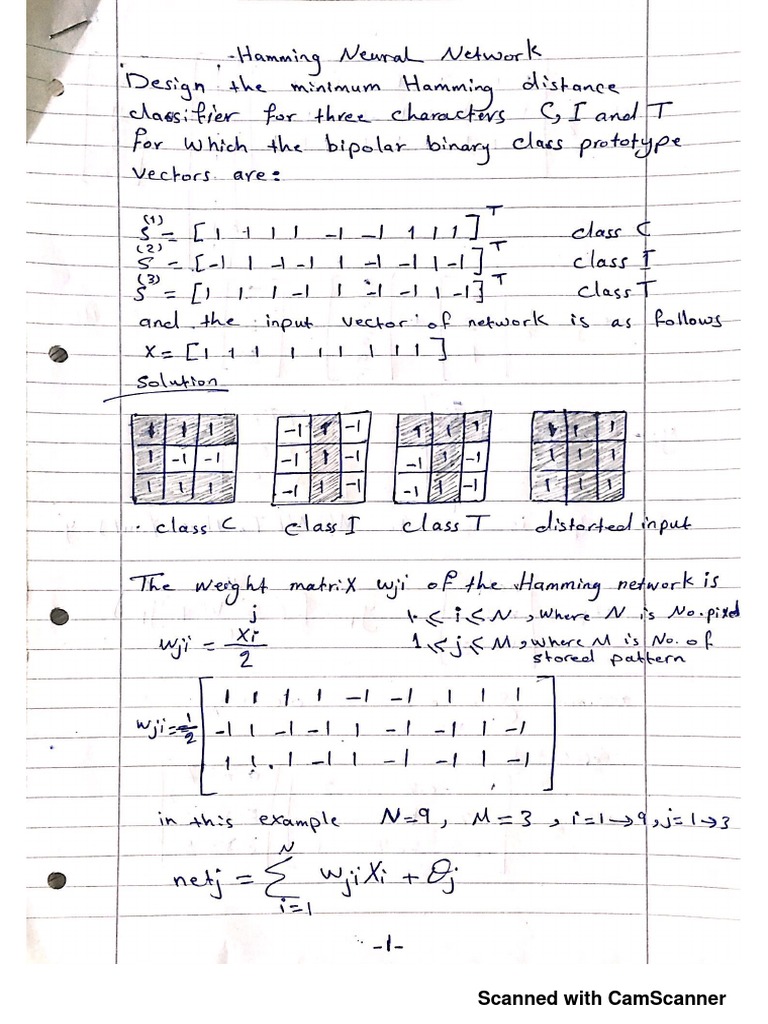 Hamming Neural Network
Design the minimum Hamming distance
classifier for three characters C, I and T
for which the bipolar binary class prototype
vectors are:
S⁽¹⁾ = [1 1 1 1 -1 -1 1 1 1]ᵀ class C
S⁽²⁾ = [-1 1 -1 -1 1 -1 -1 1 -1]ᵀ class I
S⁽³⁾ = [1 1 1 -1 1 -1 -1 1 -1]ᵀ class T
and the input vector of network is as follows
X = [1 1 1 1 1 1 1 1 1]
Solution
1 1 1 -1 1 -1 1 1 1 1 1 1
1 -1 -1 -1 1 -1 -1 1 -1 1 1 1
1 1 1 -1 1 -1 -1 1 -1 1 1 1
class C class I class T distorted input
The weight matrix wji of the Hamming network is
wji = xiʲ/2 1 ≤ i ≤ N, where N is No. pixel
1 ≤ j ≤ M, where M is No. of
stored pattern
1 1 1 1 -1 -1 1 1 1
wji = 1/2 -1 1 -1 -1 1 -1 -1 1 -1
1 1 1 -1 1 -1 -1 1 -1
in this example N=9, M=3, i=1→9, j=1→3
netj = Σ_{i=1}^{N} wji Xi + θj
-1-
Scanned with CamScanner